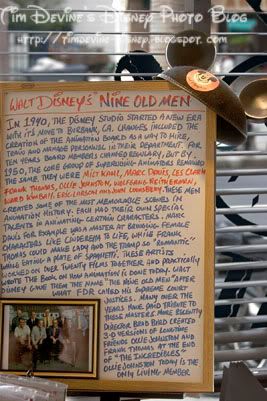 Tim Devine's Disney Photo Blog
http://timdevine-disney.blogspot.com
Walt Disney's "Nine Old Men"
In 1940, the Disney Studio started a new era
with it's move to Burbank, CA. Changes included the
creation of the Animation Board as a way to hire,
train and manage personnel in their department. For
ten years board members changed regularly, but by
1950, the core group of supervising animators remained
the same. They were Milt Kahl, Marc Davis, Les Clark
Frank Thomas, Ollie Johnston, Wolfgang Reitherman,
Ward Kimball, Eric Larson and John Lounsbery. These men
created some of the most memorable scenes in
animation history. Each had their own special
talents in animating certain characters. Marc
Davis for example was a master at bringing female
characters like Cinderella to life, while Frank
Thomas could make Lady and the Tramp so "romantic"
while eating a plate of spaghetti. These artists
worked on over twenty films together, and practically
wrote the book on how animation is done today. Walt
Disney gave them the name "The Nine Old Men" after
what FDR called his Supreme Court
Justices. Many over the
years have paid tribute to
these masters. More recently
director Brad Bird created
3-D versions of longtime
friends Ollie Johnston and
Frank Thomas at the end
of "The Incredibles"
Ollie Johnston today is the
only living member